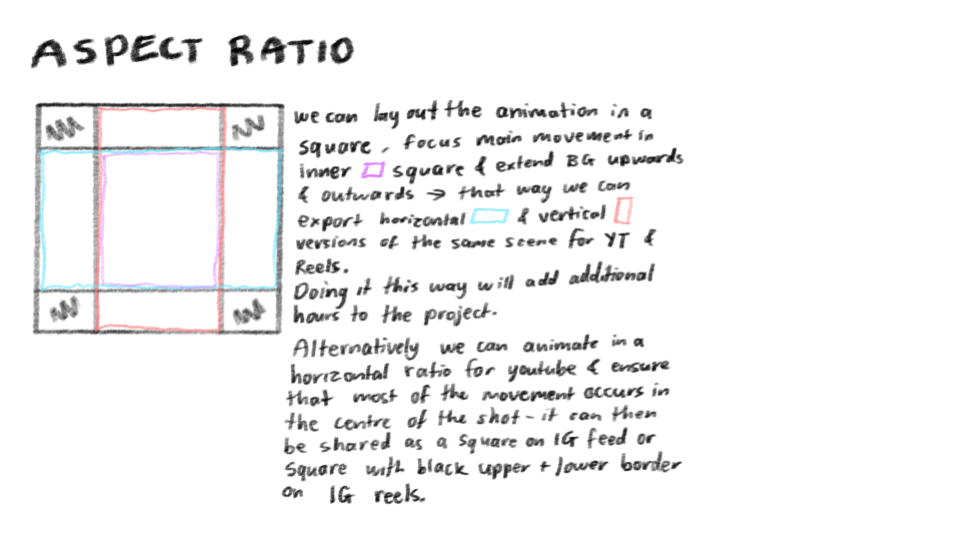 ASPECT RATIO
we can lay out the animation in a
square, focus main movement in
inner square & extend BG upwards
& outwards → that way we can
export horizontal & vertical
versions of the same scene for YT &
Reels.
Doing it this way will add additional
hours to the project.
Alternatively we can animate in a
horizontal ratio for youtube & ensure
that most of the movement occurs in
the centre of the shot - it can then
be shared as a square on IG feed or
square with black upper + lower border
on IG reels.